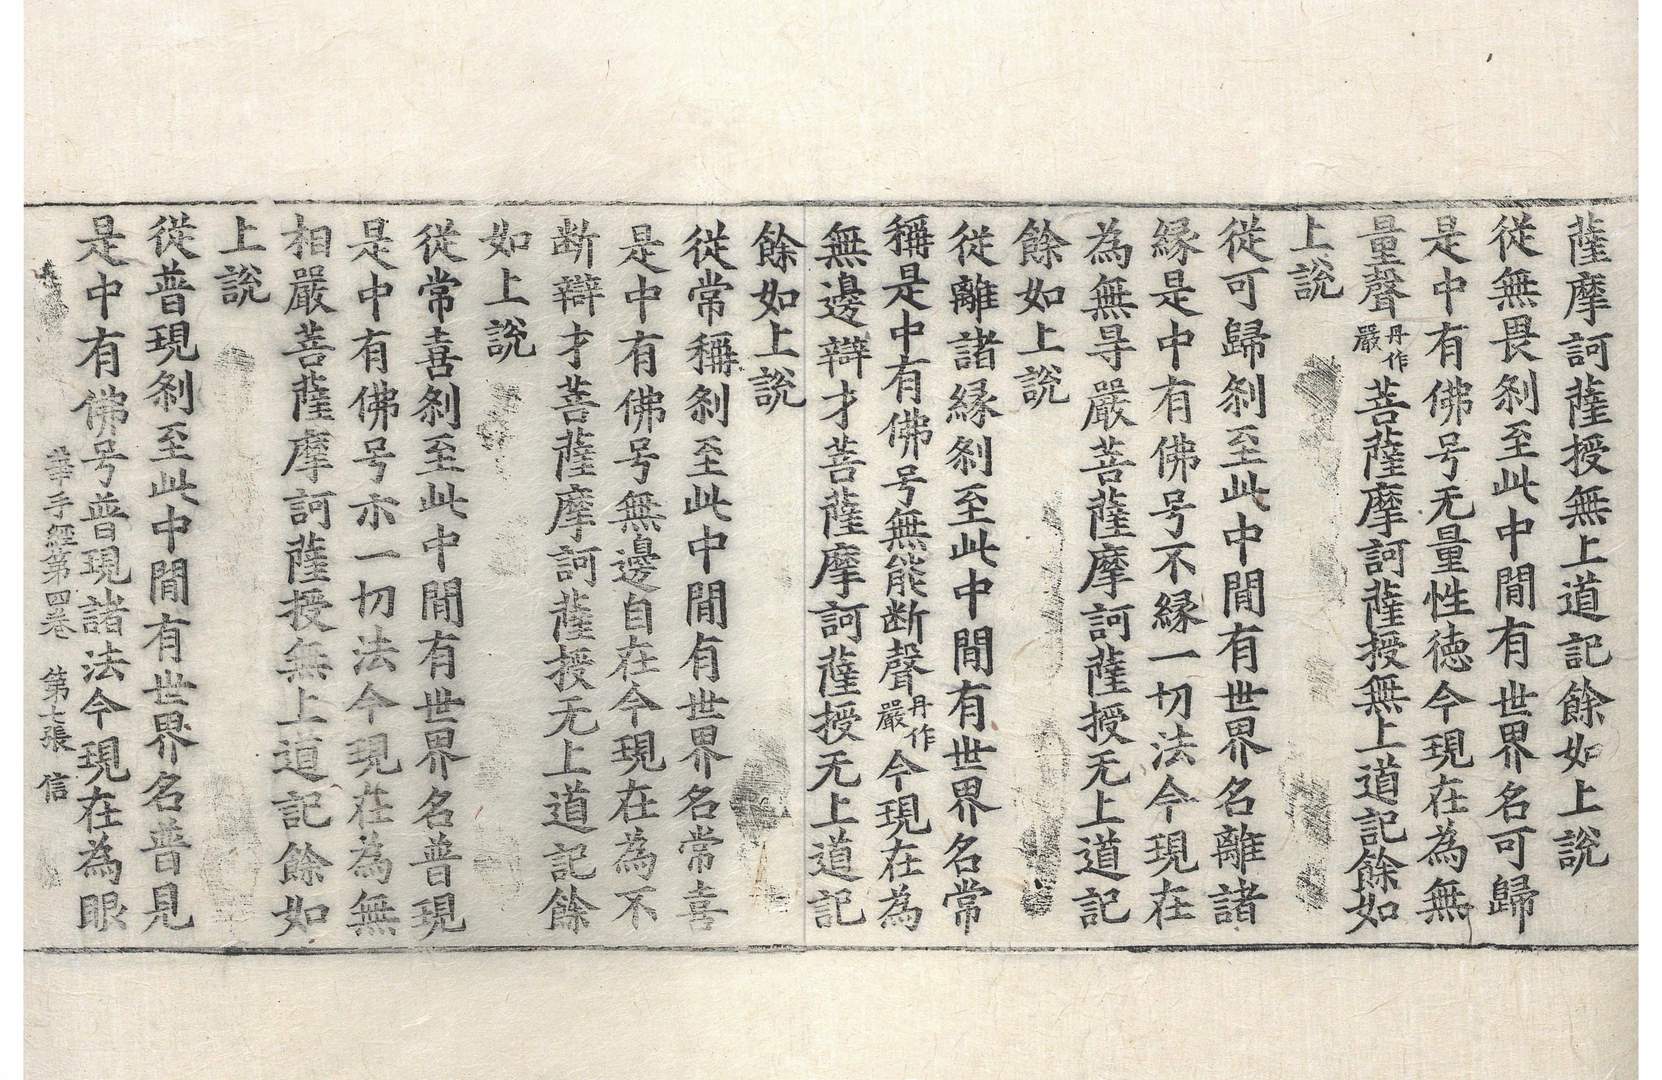 薩摩訶薩授無上道記餘如上說
從無畏刹至此中閒有世界名可歸
是中有佛号无量性徳今現在為無
量聲丹作嚴菩薩摩訶薩授無上道記餘如
上說
從可歸刹至此中閒有世界名離諸
緣是中有佛号不緣一切法今現在
為無㝵嚴菩薩摩訶薩授无上道記
餘如上說
從離諸緣刹至此中閒有世界名常
稱是中有佛号無能断聲丹作嚴今現在為
無邊辯才菩薩摩訶薩授无上道記
餘如上說
從常稱刹至此中閒有世界名常喜
是中有佛号無邊自在今現在為不
断辯才菩薩摩訶薩授无上道記餘
如上說
從常喜刹至此中閒有世界名普現
是中有佛号示一切法今現在為無
相嚴菩薩摩訶薩授無上道記餘如
上說
從普現刹至此中閒有世界名普見
是中有佛号普現諸法今現在為眼
華手經第四卷　第七張　信